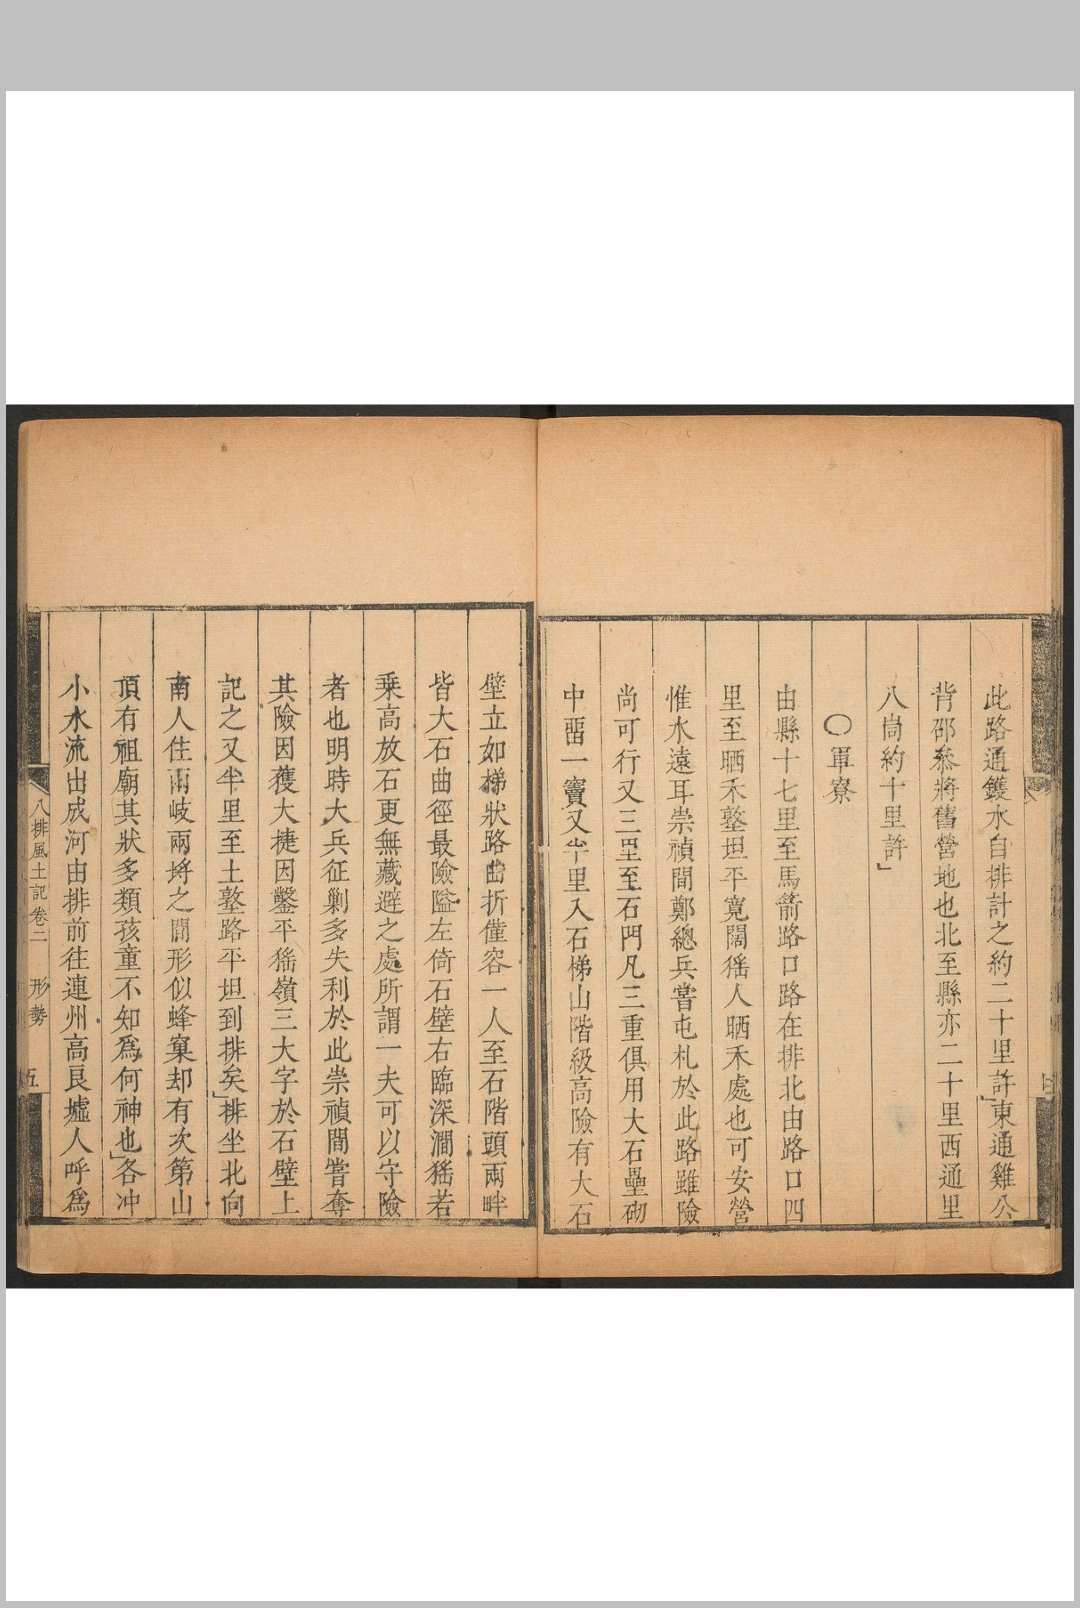 此路通鑊水自排計之約二十里許東通雞公
背邵叅將舊營地也北至縣亦二十里西通里
八峝約十里許
〇軍寮
由縣十七里至馬箭路口路在排北由路口四
里至晒禾𡐤坦平寛闊猺人晒禾處也可安營
惟水遠耳崇禎間鄭總兵嘗屯札於此路雖險
尚可行又三里至石門凡三重俱用大石壘砌
中畱一竇又半里入石梯山階級高險有大石
壁立如梯狀路曲折僅容一人至石階頭兩畔
皆大石曲徑最險隘左倚石壁右臨深澗猺若
乘高放石更無藏避之處所謂一夫可以守險
者也明時大兵征剿多失利於此崇禎間嘗奪
其險因獲大捷因鑿平猺嶺三大字於石壁上
記之又半里至土𡐤路平坦到排矣排坐北向
南人住兩岐兩埒之間形似蜂窠却有次第山
頂有祖廟其狀多類孩童不知爲何神也各冲
小水流出成河由排前往連州高良墟人呼爲
八排風土記卷二 形勢 五